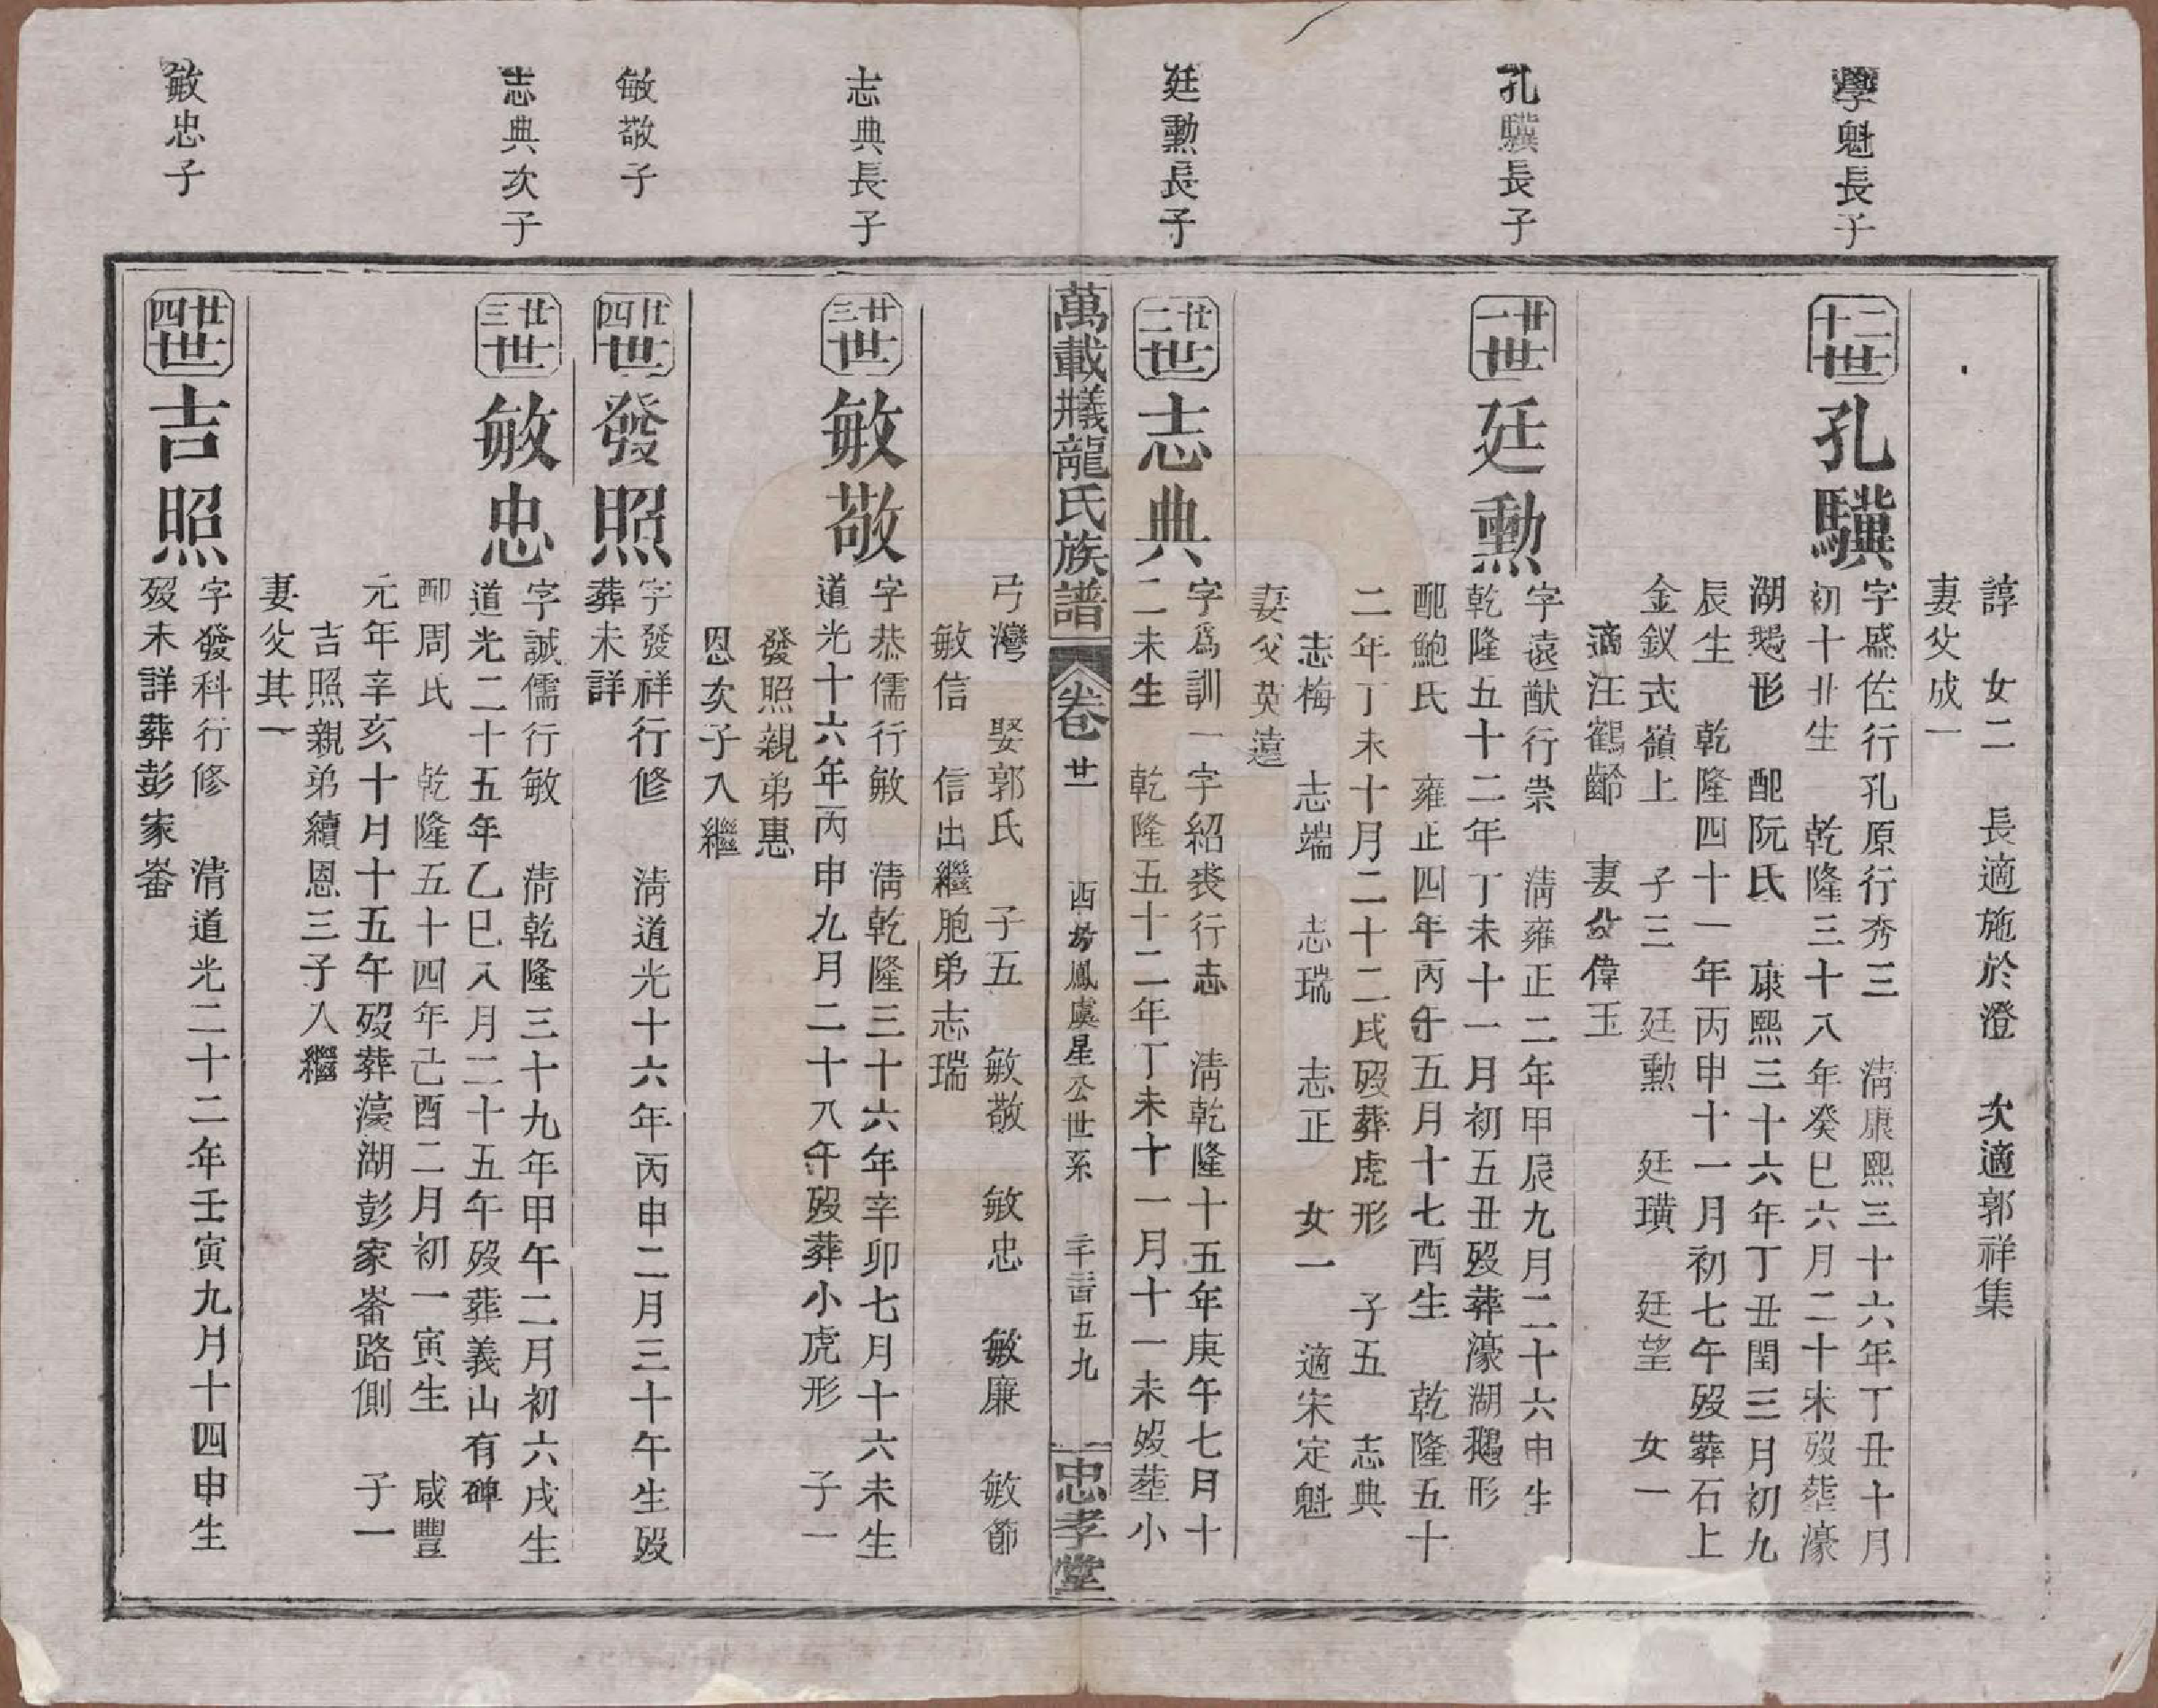 諄　女二　長適施於澄　次適郭祥集
妻父成一
學魁長子
二十世
孔驥
字盛佐行孔原行秀三　清康熙三十六年丁丑十月
初十丑生　乾隆三十八年癸巳六月二十未歿葬濠
湖鵝形　配阮氏　康熙三十六年丁丑閏三月初九
辰生　乾隆四十一年丙申十一月初七午歿葬石上
金釵式嶺上　子三　廷勳　廷璜　廷望　女一
適汪鶴齡　妻父偉玉
孔驥長子
廿一世
廷勳
字遠猷行崇　清雍正二年甲辰九月二十六申生
乾隆五十二年丁未十一月初五丑歿葬濠湖鵝形
配鮑氏　雍正四年丙午五月十七酉生　乾隆五十
二年丁未十月二十二戌歿葬虎形　子五　志典
志梅　志端　志瑞　志正　女一　適宋定魁
妻父英遠
廷勳長子
廿二世
志典
字爲訓一字紹裘行志　清乾隆十五年庚午七月十
二未生　乾隆五十二年丁未十一月十一未歿葬小
萬載㰕龍氏族譜　卷廿一　西坊鳳虞星公世系　二千二百五九　忠孝堂
弓灣　娶郭氏　子五　敏敬　敏忠　敏廉　敏節
敏信　信出繼胞弟志瑞
志典長子
廿三世
敏敬
字恭儒行敏　清乾隆三十六年辛卯七月十六未生
道光十六年丙申九月二十八午歿葬小虎形　子一
發照親弟惠
恩次子入繼
敏敬子
廿四世
發照
字發祥行修　清道光十六年丙申二月三十午生歿
葬未詳
志典次子
廿三世
敏忠
字誠儒行敏　清乾隆三十九年甲午二月初六戌生
道光二十五年乙巳八月二十五午歿葬義山有碑
配周氏　乾隆五十四年己酉二月初一寅生　咸豐
元年辛亥十月十五午歿葬濠湖彭家崙路側　子一
吉照親弟續恩三子入繼
妻父其一
敏忠子
廿四世
吉照
字發科行修　清道光二十二年壬寅九月十四申生
歿未詳葬彭家崙